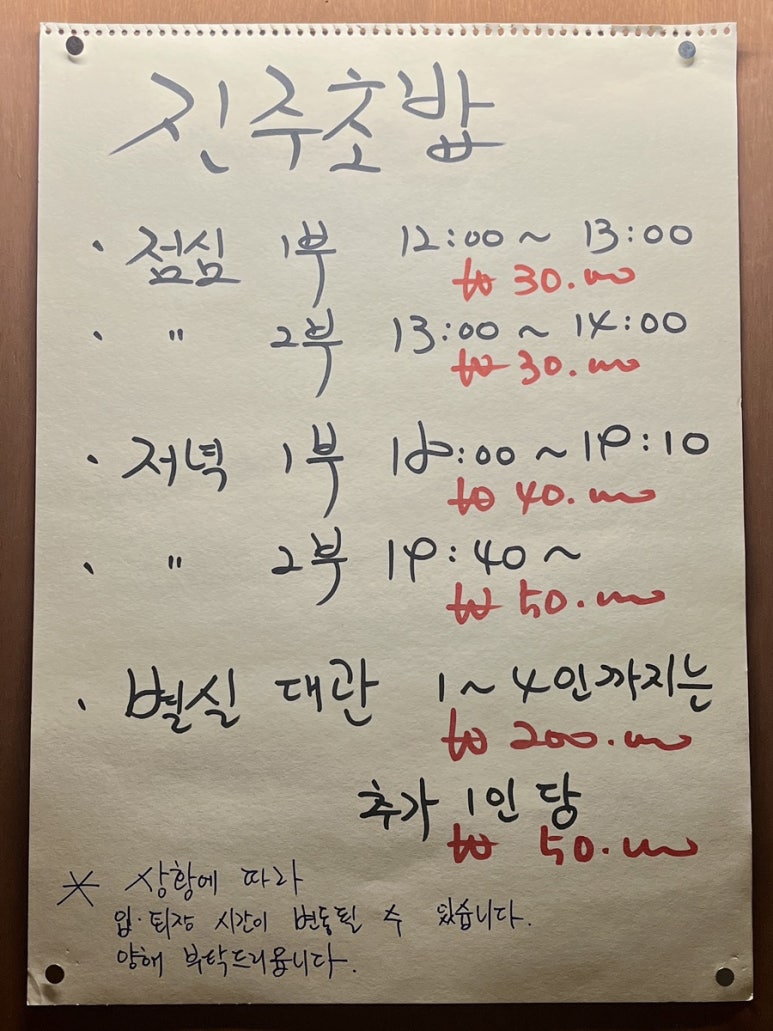 진주초밥
· 점심 1부 12:00 ~ 13:00
₩ 30.000
· " 2부 13:00 ~ 14:00
₩ 30.000
· 저녁 1부 18:00 ~ 19:10
₩ 40.000
· " 2부 19:40 ~
₩ 50.000
· 별실 대관 1 ~ 4인까지는
₩ 200.000
추가 1인 당
₩ 50.000
※ 상황에 따라
입·퇴장 시간이 변동될 수 있습니다.
양해 부탁드리옵니다.